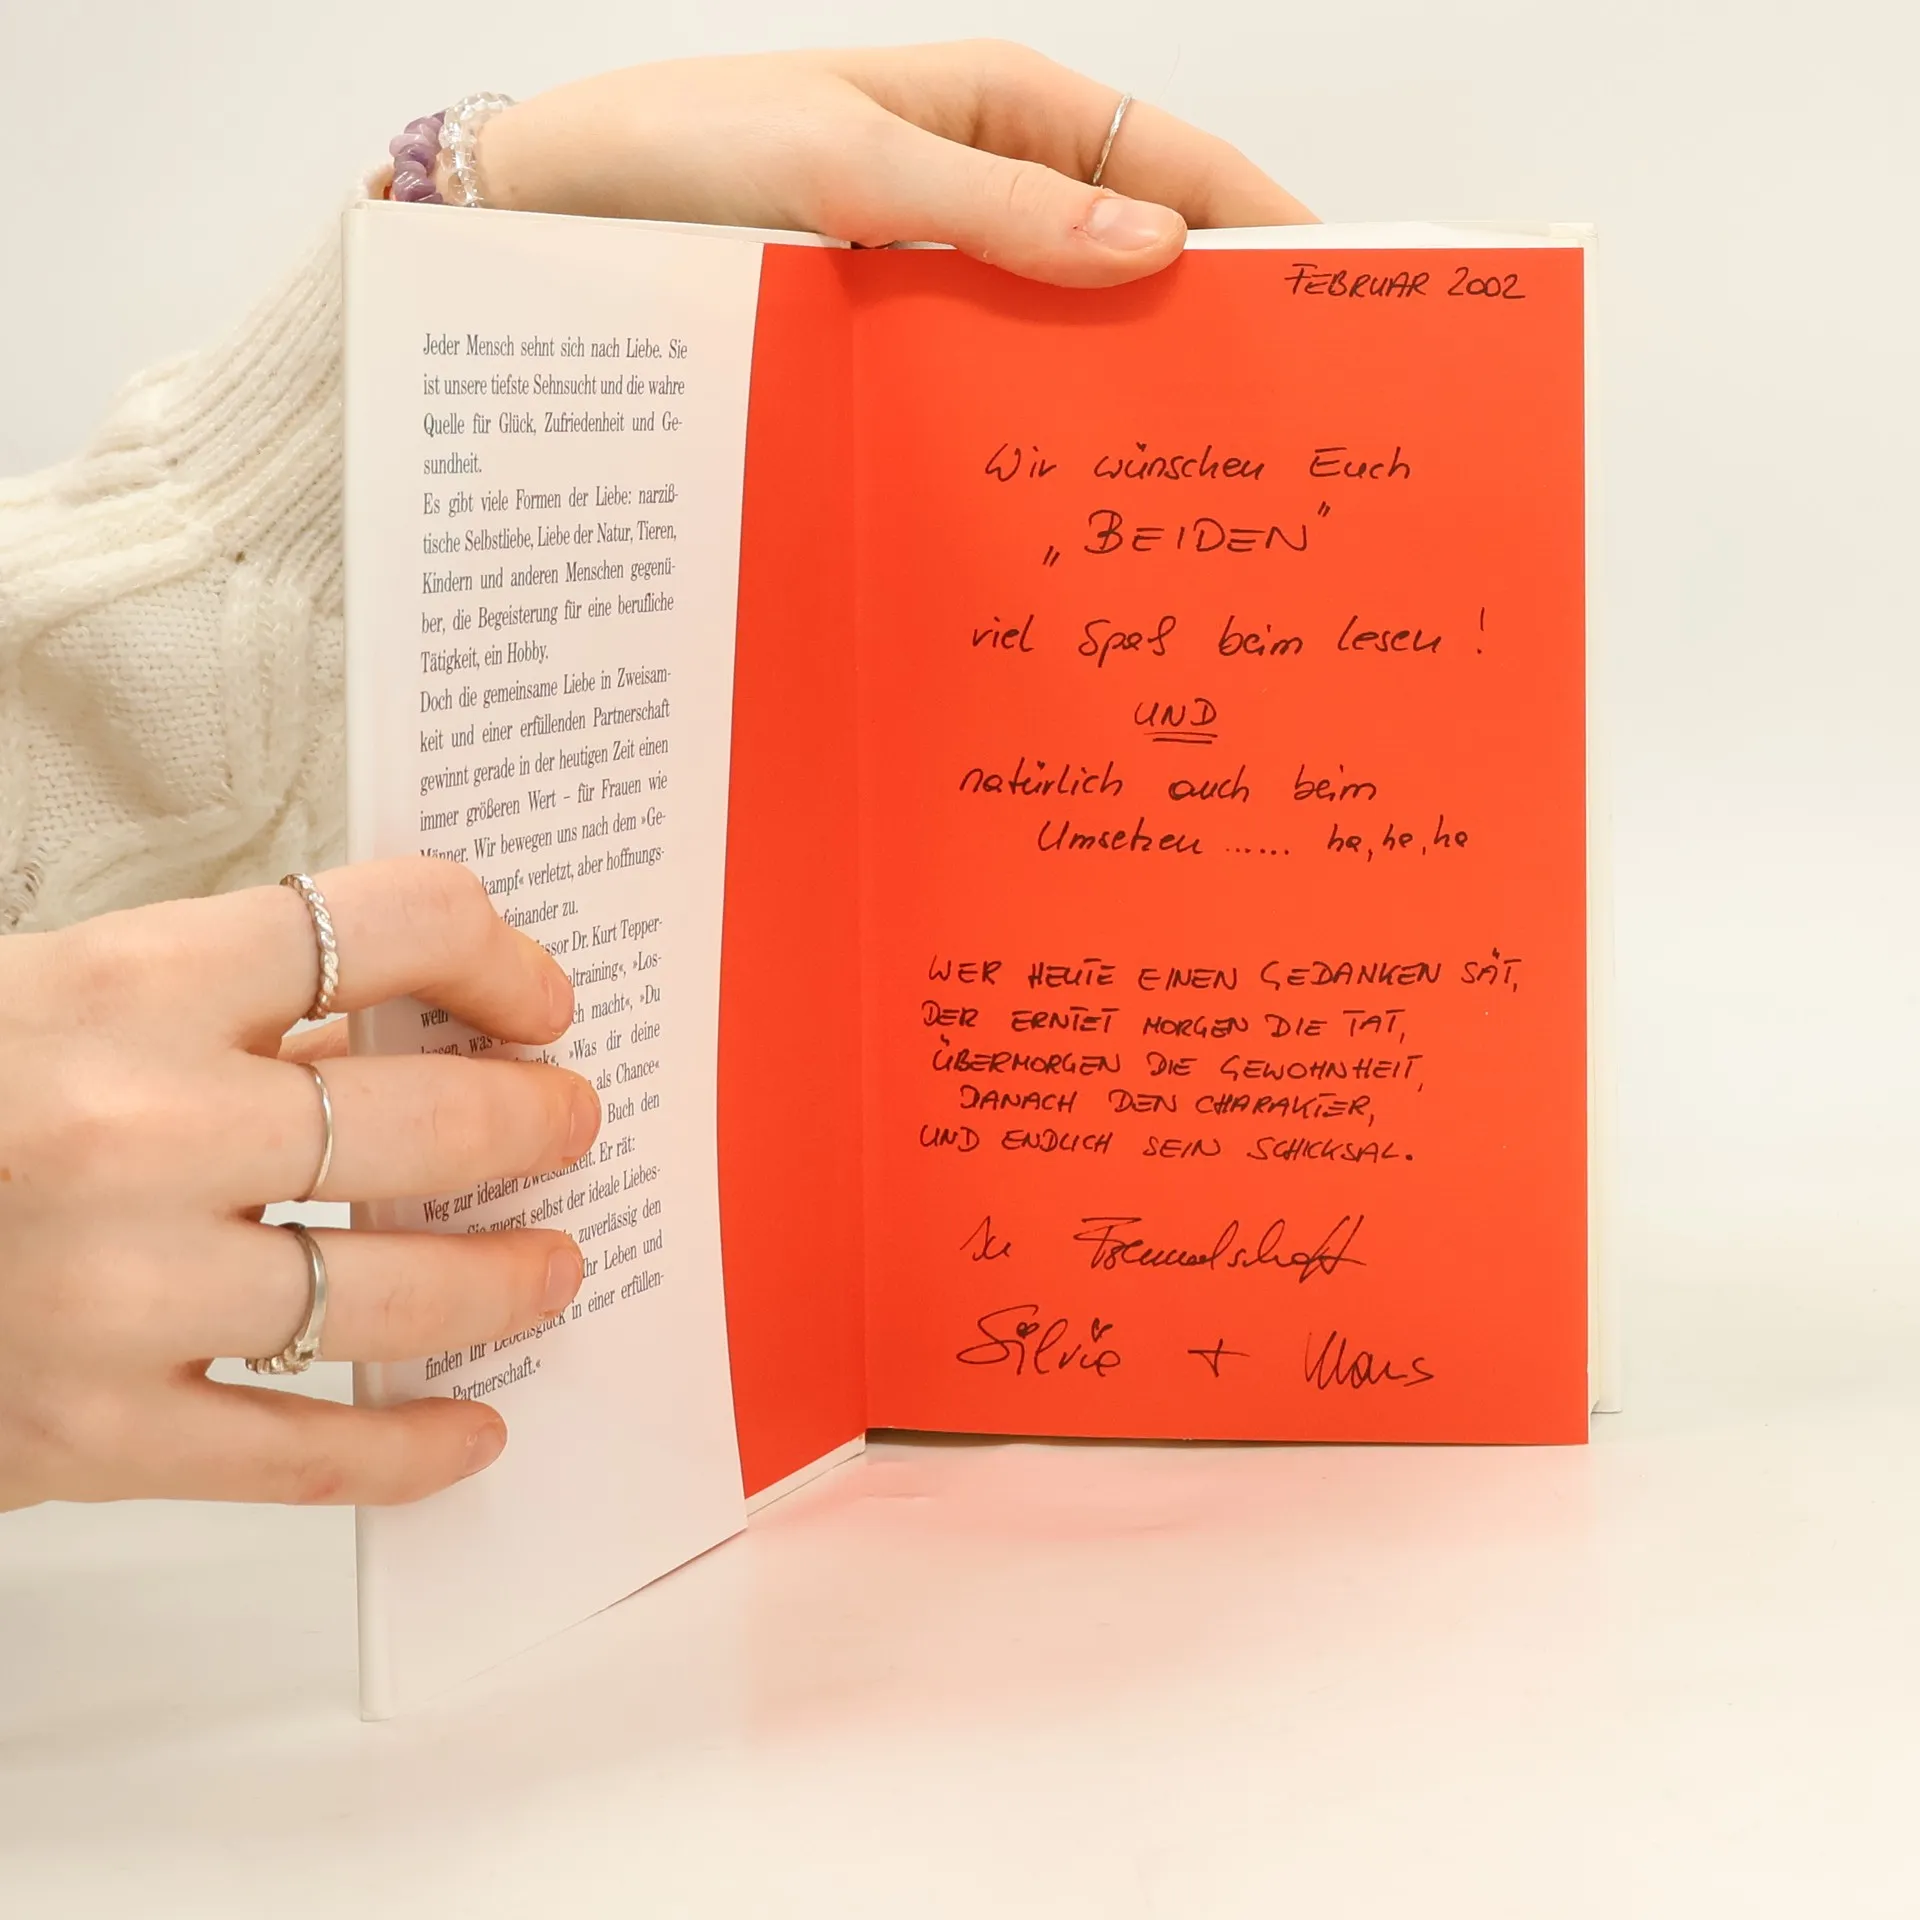 Jeder Mensch sehnt sich nach Liebe. Sie
ist unsere tiefste Sehnsucht und die wahre
Quelle für Glück, Zufriedenheit und Ge-
sundheit.
Es gibt viele Formen der Liebe: narziß-
tische Selbstliebe, Liebe der Natur, Tieren,
Kindern und anderen Menschen gegenü-
ber, die Begeisterung für eine berufliche
Tätigkeit, ein Hobby.
Doch die gemeinsame Liebe in Zweisam-
keit und einer erfüllenden Partnerschaft
gewinnt gerade in der heutigen Zeit einen
immer größeren Wert – für Frauen wie
Männer. Wir bewegen uns nach dem »Ge-
kampf« verletzt, aber hoffnungs-
feinander zu.
ssor Dr. Kurt Tepper-
ltraining«, »Los-
ch macht«, »Du
was »Was dir deine
als Chance«
Buch den
Weg zur idealen Zweisamkeit. Er rät:
Sie zuerst selbst der ideale Liebes-
zuverlässig den
Ihr Leben und
finden Ihr Lebensglück in einer erfüllen-
Partnerschaft.«
FEBRUAR 2002
Wir wünschen Euch
„BEIDEN"
viel Spaß beim lesen !
UND
natürlich auch beim
Umsetzen ...... ha, ha, ha
WER HEUTE EINEN GEDANKEN SÄT,
DER ERNTET MORGEN DIE TAT,
ÜBERMORGEN DIE GEWOHNHEIT,
DANACH DEN CHARAKTER,
UND ENDLICH SEIN SCHICKSAL.
In Freundschaft
Silvia + Klaus